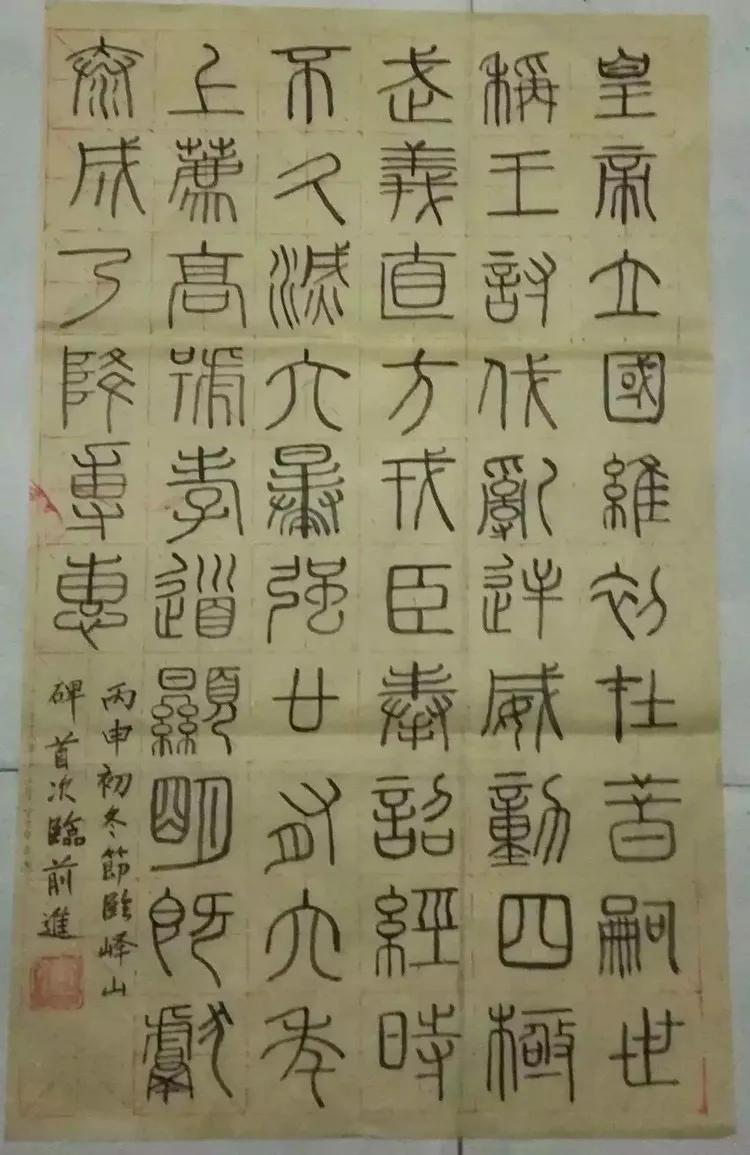 皇帝立國維初在昔嗣世
稱王討伐亂逆威動四極
武義直方戎臣奉詔經時
不久滅六暴強廿有六年
上薦高號孝道顯明既獻
泰成乃降專惠
丙申初冬節臨峄山
碑首次臨前進